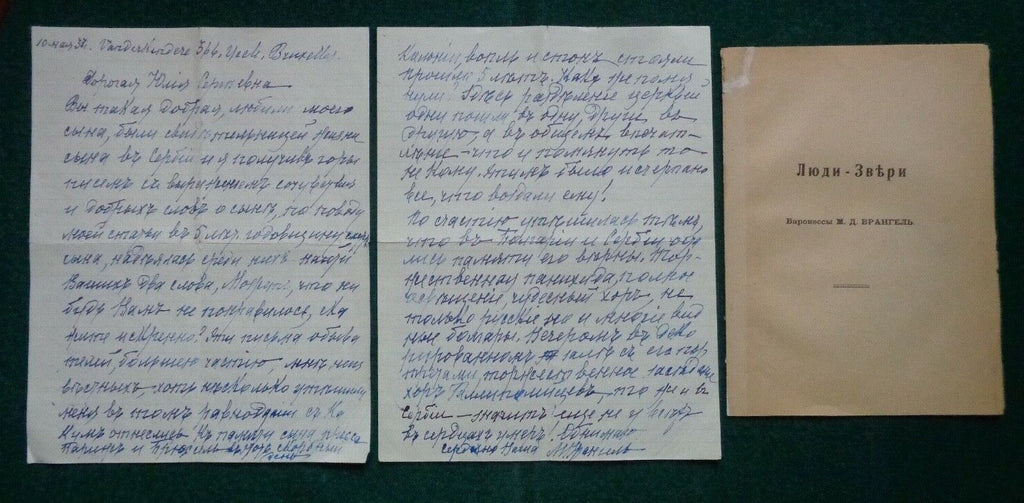 10 мая 34. Vanderkindere 366, Uccle, Bruxelles.
Дорогая Юлія Сергѣевна
Вы такая добрая, любили моего
сына, были свидѣтельницей жизни
сына въ Сербіи и я получивъ горы
писемъ съ выраженіемъ сочувствія
и добрыхъ словъ о сынѣ, по поводу
моей статьи въ 5 лѣт. годовщину
сына, надѣялась среди нихъ найти
Вашихъ два слова. Можетъ, что ни
будь Вамъ не понравилось, ска
жите искренно? Эти письма обыва
телей, большею частію, мнѣ неиз
вѣстныхъ, хоть нѣсколько утѣшили
меня въ томъ равнодушіи съ ка
кимъ отнеслись къ памяти сына
Парижъ и Брюссель
вопль и стонъ стояли
прошли 5 лѣтъ. Какъ
раздѣленіе церквей
одни пошли въ одну, другіе въ
другую, а въ общемъ впечат
лѣніе - что и помянуть то
не кому. Этимъ было исчерпано
все, что воздали ему!
Къ счастію утѣшилась тѣмъ,
что въ Болгаріи и Сербіи
памяти его вѣрны. Тор
жественная панихида, полное
освѣщеніе, чудесный хоръ, не
только русскіе но и многіе вид
ные болгары. Вечеромъ въ деко
рированномъ залѣ съ его пор
третами, торжественное засѣданіе
хоръ то же и въ
Сербіи - значитъ еще не у всѣхъ
въ сердцахъ умеръ! Обнимаю
сердечно Ваша М. Врангель
Люди-Звѣри
Баронессы М. Д. ВРАНГЕЛЬ.